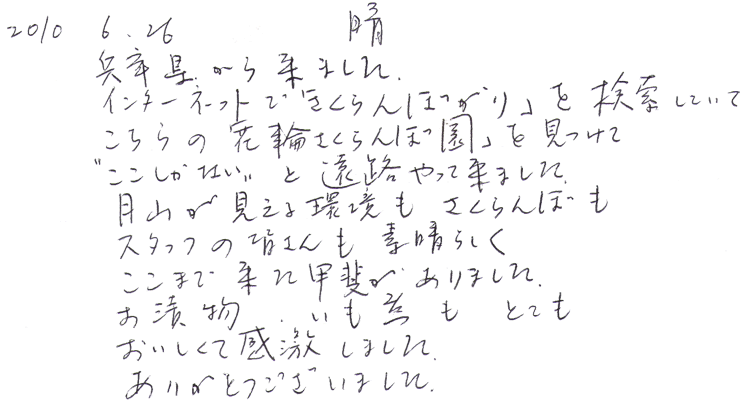 2010 6.26 晴
兵庫県から来ました。
インターネットで「さくらんぼがり」を検索していて
こちらの「花輪さくらんぼ園」を見つけて
"ここしかない"と遠路やって来ました。
月山が見える環境もさくらんぼも
スタッフの皆さんも素晴らしく
ここまで来た甲斐がありました。
お漬物、いも煮もとても
おいしくて感激しました。
ありがとうございました。